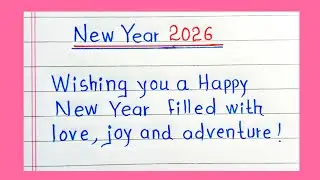 New Year 2026
Wishing you a Happy
New Year filled with
love, joy and adventure!